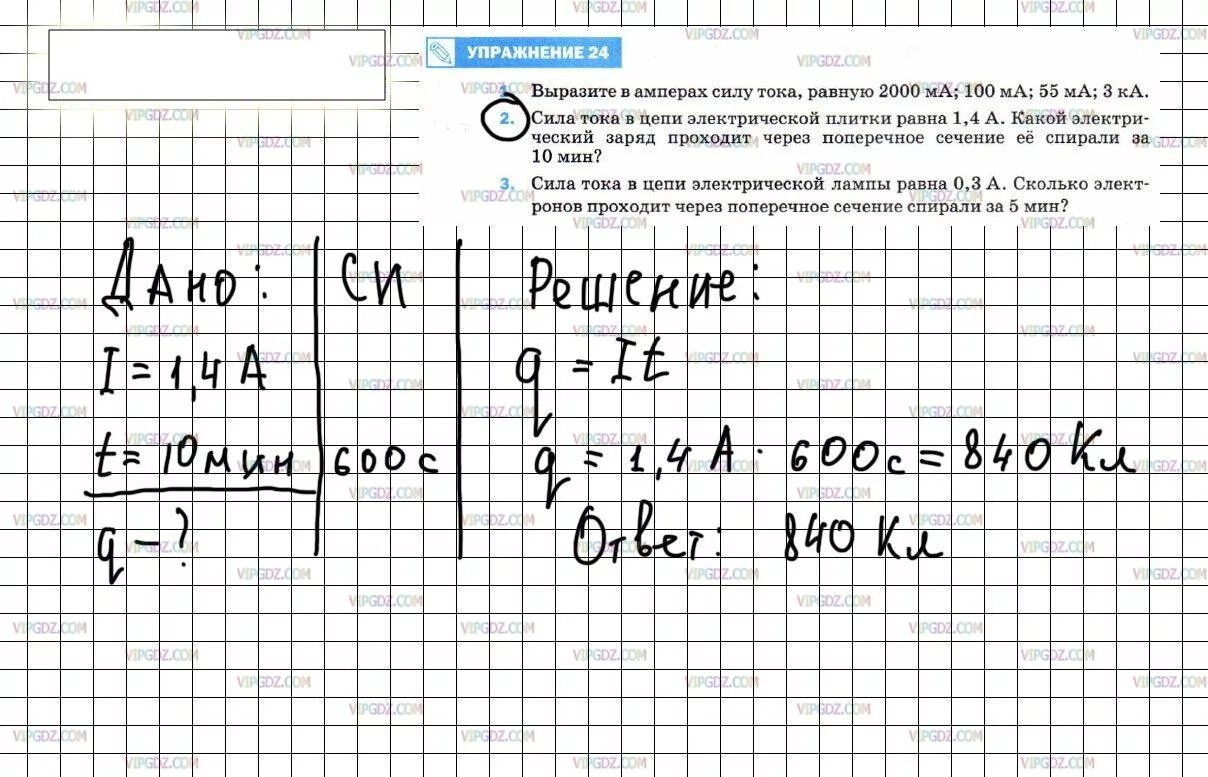 УПРАЖНЕНИЕ 24
1. Выразите в амперах силу тока, равную 2000 мА; 100 мА; 55 мА; 3 кА.
2. Сила тока в цепи электрической плитки равна 1,4 А. Какой электри-
ческий заряд проходит через поперечное сечение её спирали за
10 мин?
3. Сила тока в цепи электрической лампы равна 0,3 А. Сколько элект-
ронов проходит через поперечное сечение спирали за 5 мин?
Дано: СИ Решение:
I = 1,4 А q = It
t = 10 мин 600 с q = 1,4 А · 600 с = 840 Кл
q - ? Ответ: 840 Кл
VIPGDZ.COM